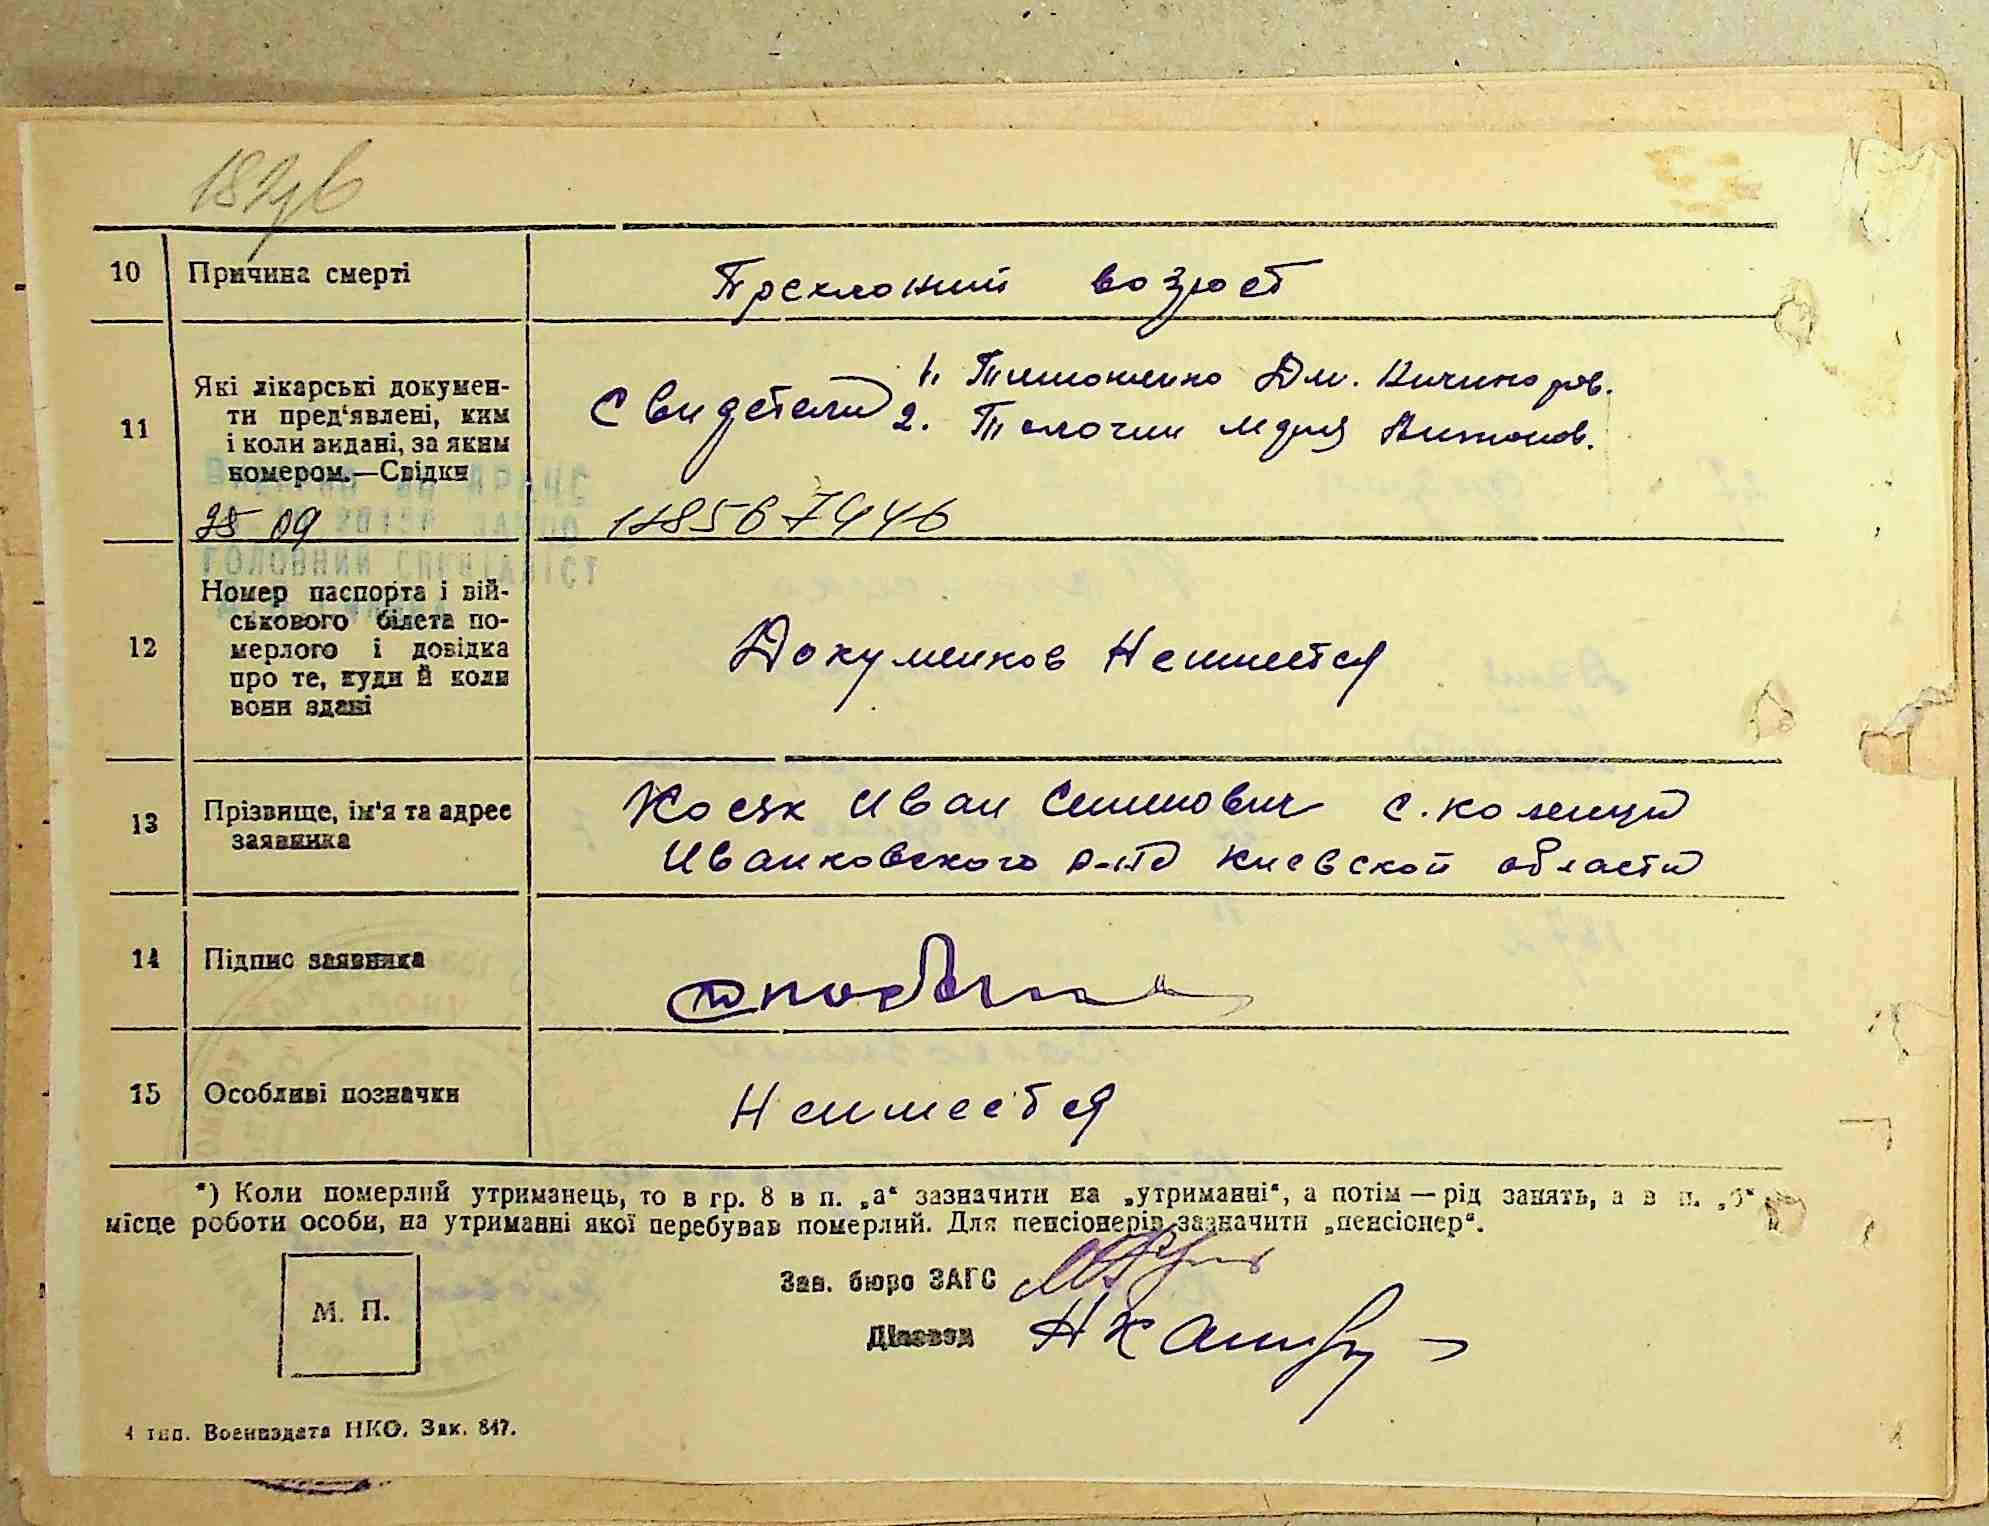 10 Причина смерті Преклоний возраст
11 Які лікарські документи пред'явлені, ким і коли видані, за яким номером.—Свідки
Свидетели 1. Тимошенко Дм. Никиноров.
2. Телочин Мария Антонов.
25 09 11856 7446
ГОЛОВНИЙ СПЕЦІАЛІСТ
12 Номер паспорта і вій-
ськового білета по-
мерлого і довідка
про те, куди й коли
вони здані
Докуменков Неимеется
13 Прізвище, ім'я та адрес
заявника
Косяк Иван Семинович с. Коленци
Иванковского р-на Киевской области
14 Підпис заявника
15 Особливі позначки Неимеется
*) Коли померлий утриманець, то в гр. 8 в п. „а“ зазначити на „утриманні“, а потім — рід занять, а в п. „б“
місце роботи особи, на утриманні якої перебував померлий. Для пенсіонерів зазначити „пенсіонер“.
Зав. бюро ЗАГС
М. П.
Діловод
4 тип. Воениздата НКО. Зак. 847.